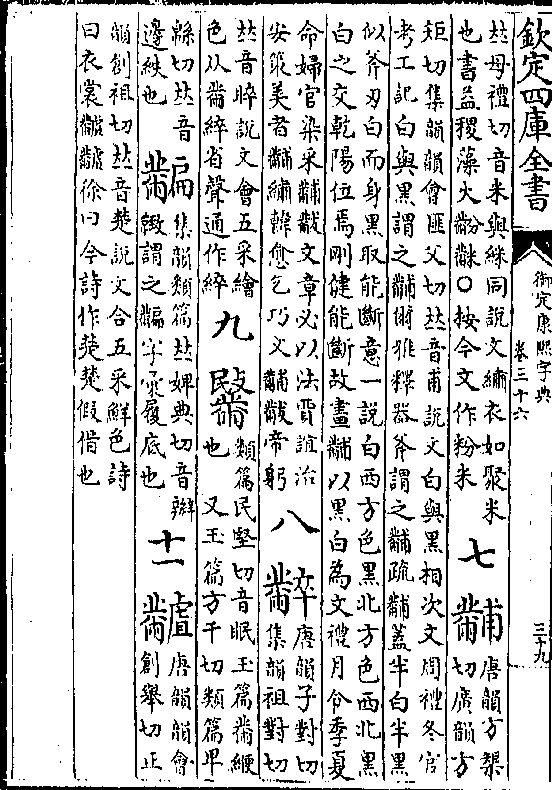 欽定四庫全書
御定康熙字典
卷三十六
三十九
𠀤母禮切音米與絲同說文繡衣如聚米
也書益稷藻火黺𪓋○按今文作粉米
七
黼
唐韻方榘
切廣韻方
矩切集韻韻會匪父切𠀤音甫說文白與黑相次文周禮冬官
考工記白與黑謂之黼爾雅釋器斧謂之黼疏黼蓋半白半黑
似斧刃白而身黑取能斷意一說白西方色黑北方色西北黑
白之交乾陽位焉剛健能斷故畫黼以黑白為文禮月令季夏
命婦官染采黼黻文章必以法賈誼治
安策美者黼繡韓愈乞巧文黼黻帝躬
八
𪓌
唐韻子對切
集韻祖對切
𠀤音晬說文會五采繒
色从黹綷省聲通作綷
九
類篇民堅切音眠玉篇黹緶
也 又玉篇方千切類篇𤰞
緜切𠀤音
邊紩也
集韻類篇𠀤婢典切音辮
緻謂之字彙履底也
十一
𪓐
唐韻韻會
創舉切正
韻創祖切𠀤音楚說文合五采鮮色詩
曰衣裳𪓐𪓐徐曰今詩作楚楚假借也